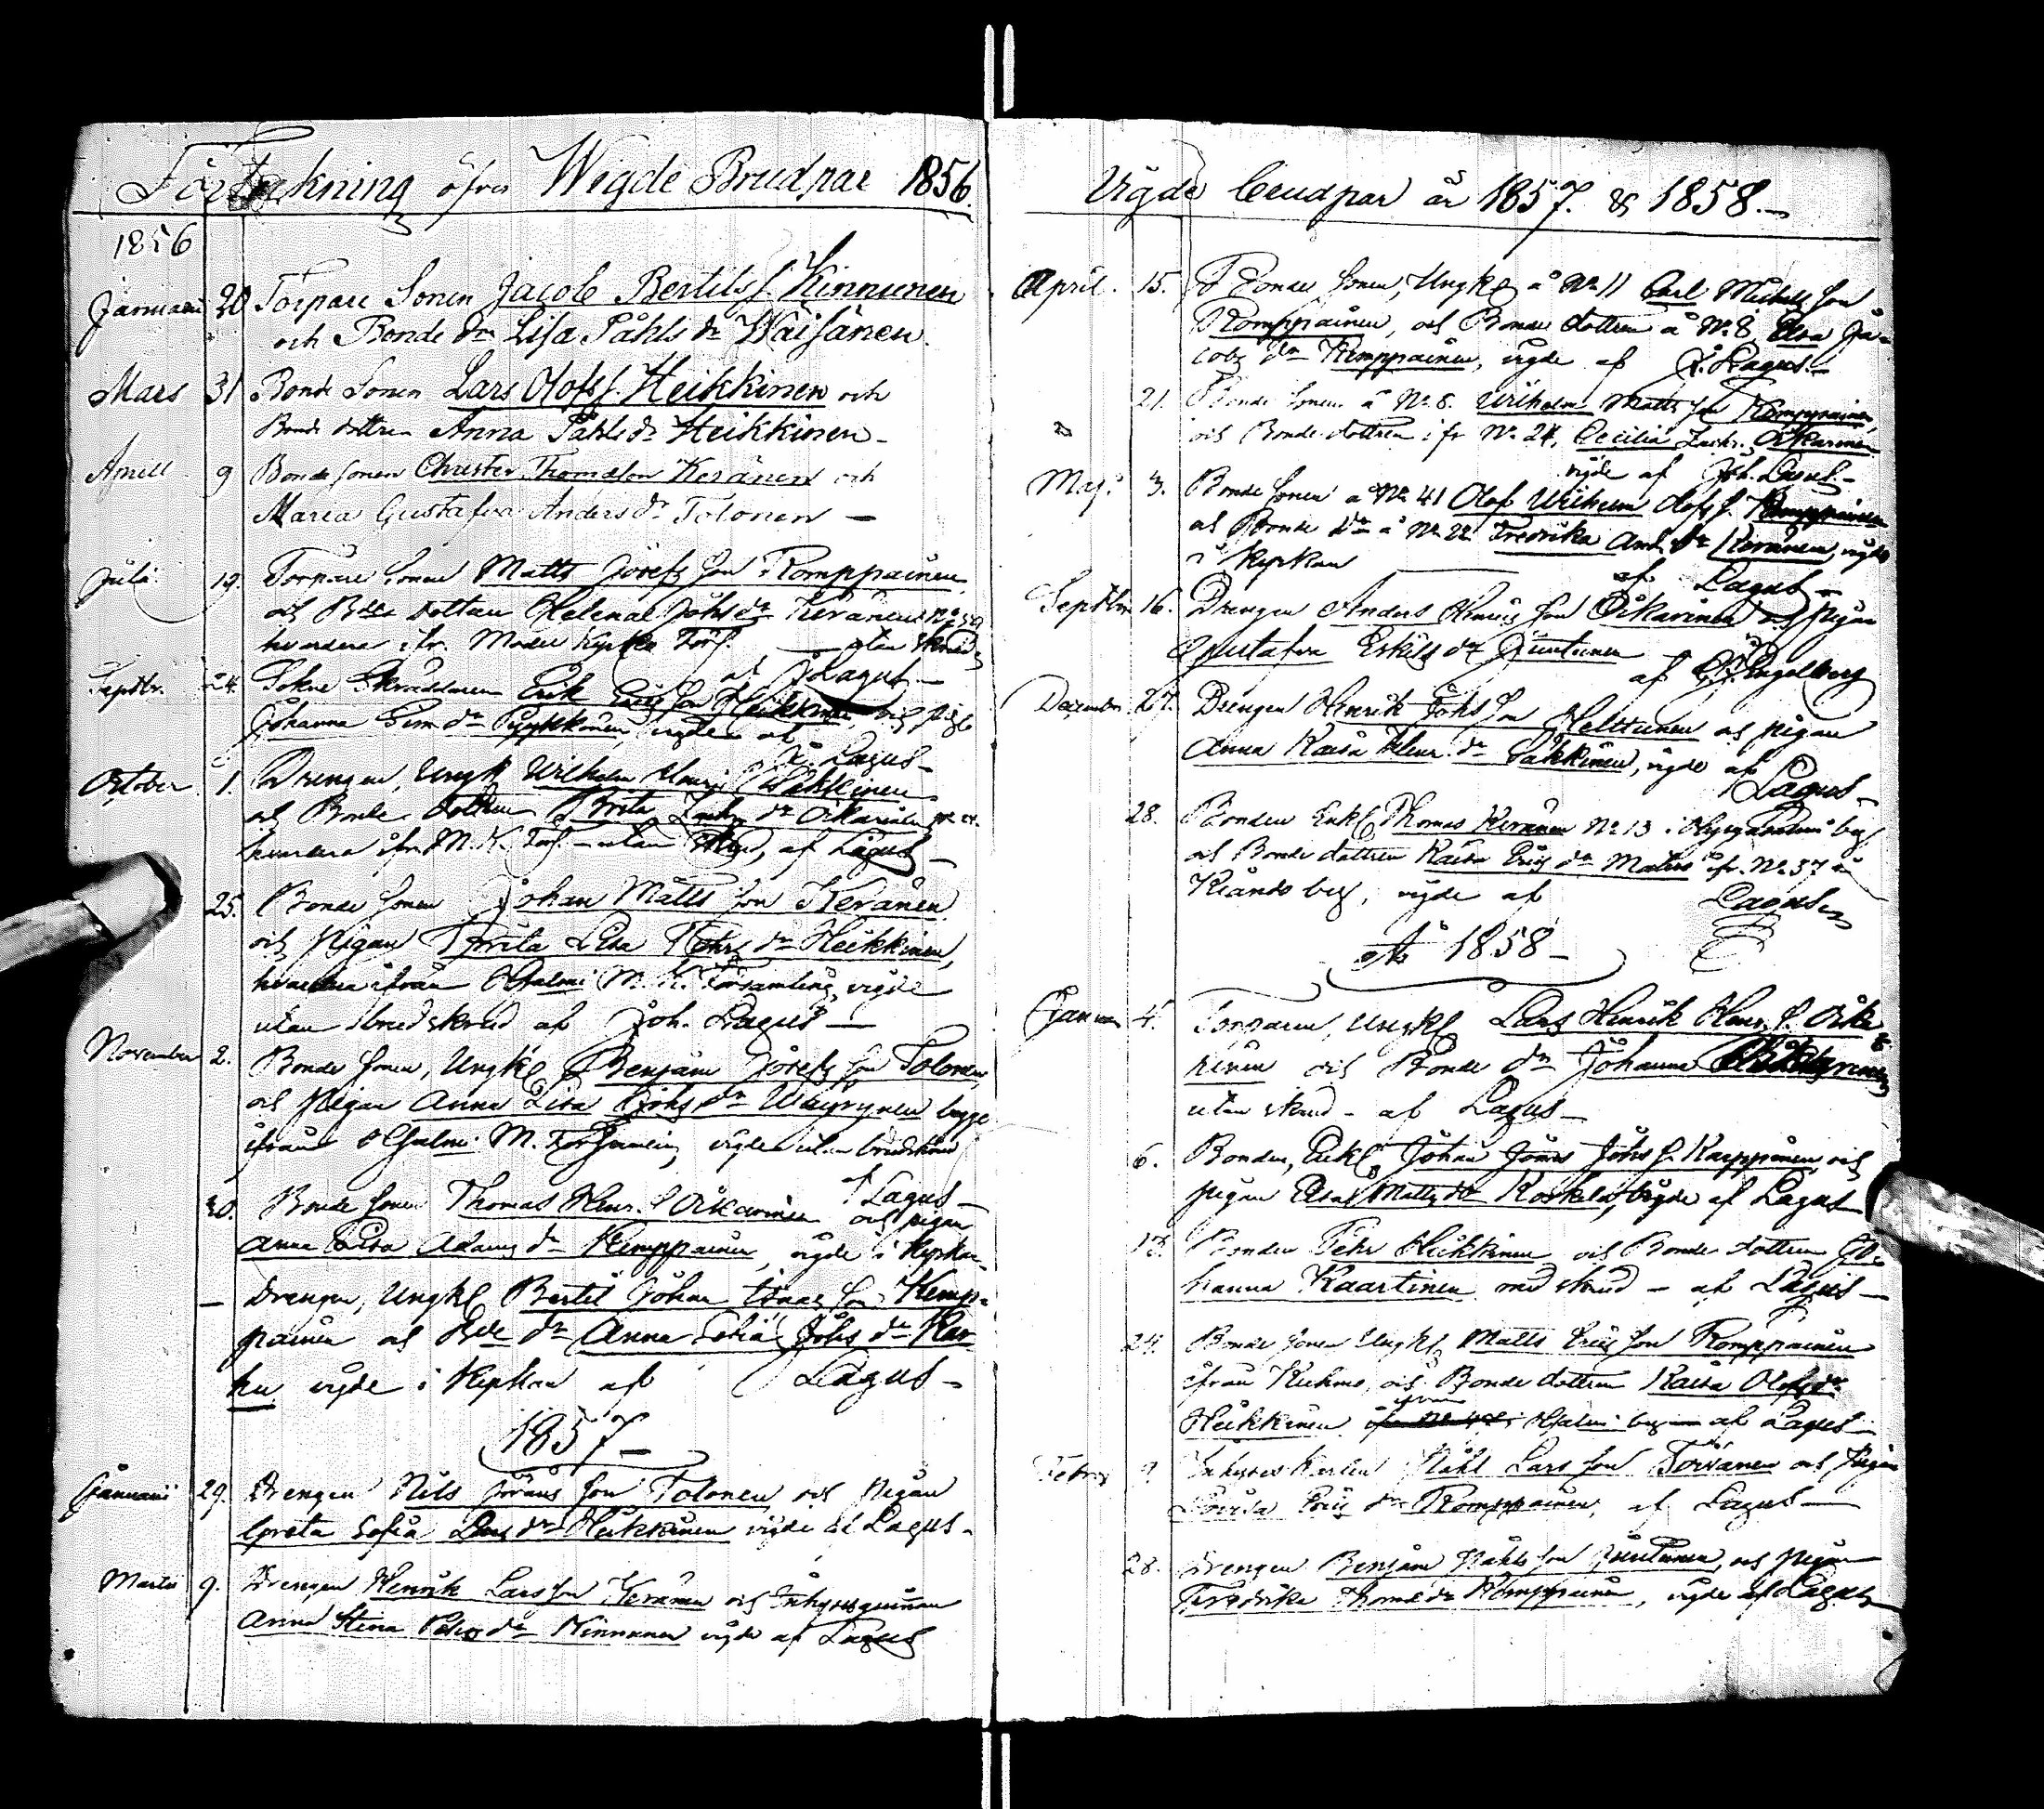 Förteckning öfver Wigde Brudpar 1856.
1856
Januari 20 Torpare Sonen Jacob Bertils s. Kinnunen
och Bonde dr Lisa Påhls dr Wäisänen.
Mars 31 Bonde Sonen Lars Olofs s. Heikkinen och
Bonde dottren Anna Påhls dr Heikkinen
Aprill 9 Bonde sonen Christer Thomasson Keränen och
Maria Gustafva Anders dr Tolonen —
Juli 19. Torpare Sonen Matts Josefs son Romppainen
och Bde dottren Helena Johs dr Keränen
hvardera ifr. Moder Kyrko Förs. utan skrud
af J Lagus —
Septbr. 24. Sokne Skräddaren Erik Erics son Heikkinen och pig.
Johanna Sim dr Pyykkönen, vigde af
J. Lagus —
October 1. Drengen, Ungk. Wilhelm Henr.
och Bonde dottren Brita Zachr. dr Oikarinen
hvardera ifr M. K. Förs. – utan skrud, af Lagus —
25. Bonde Sonen Johan Matts son Keränen
och Pigan Brita Lisa dr Heikkinen,
hvardera ifrån M. K. Församling, vigde
utan brudskrud af Joh. Lagus —
November 2. Bonde Sonen, Ungk. Benjam Josefs son Tolonen,
och Pigan Anna Lisa Johs dr Wäyrynen begge
ifrån M. Församling vigde utan brudskrud
af Lagus —
30. Bonde Sonen Thomas Henr. s Oikarinen och pigan
Anna Lisa Adams dr Kemppainen, vigde i Kyrkan
— Drengen, Ungk. Bertil Johan son Kemp-
painen och Bde dr Anna Sofia Johs dr Kar
hu vigde i Kyrkan af Lagus —
1857 —
Januari 29. Drengen Nils Jörans son Tolonen, och Pigan
Greta Sofia Lars dr Heikkinen vigde af Lagus —
Martii 9. Drengen Henrik Lars son Keränen och Inhysesqvinnan
Anna Stina dr Kinnunen vigde af Lagus
Vigde brudpar år 1857. & 1858. —
April. 15. Bonde Sonen, Ungk. å No 11 Carl Michels son
Romppainen, och Bonde dottren å No 8. Elsa Ja-
cobs dr Kemppainen, vigde af J. Lagus —
21. Bonde Sonen å No 8. Wilhelm Matts son Kemppainen,
och Bonde dottren ifr No 24, Cecilia Zachr. Oikarinen
vigde af Joh. Lagus —
Maji 3. Bonde Sonen å No 41 Olof Wilhelm Olofs s. Romppainen
och Bonde dr å No 22 Fredrika And. dr Keränen, vigde
i Kyrkan — af Lagus —
Septbr 16. Drengen Anders Henrics son Oikarinen och Pigan
Gustafva Eskils dr Juntunen
af Engelberg
December 27. Drengen Henrik Johs son Helttunen och pigan
Anna Kaisa Henr. dr Säkkinen, vigde af
Lagus —
28. Bonden Enkl. Thomas Keränen No 13 i
och Bonde dottren Kaisa Erics dr Matero ifr. No 37 i
by, vigde af Lagus
År 1858 —
Januari 4. Torparen, Ungkl Lars Henrik Henr. s. Oika-
rinen och Bonde dr Johanna
utan skrud – af Lagus —
6. Bonden, Enkl. Johan Jonas Johs s. Karppinen och
pigan Elsa Matts dr Koskela, vigde af Lagus
13. Bonden Pehr Heikkinen och Bonde dottren Jo-
hanna Kaartinen med skrud – af Lagus —
24. Bonde Sonen Ungkl. Matts Erics son Romppainen
ifrån Kuhmo, och Bonde dottren Kaisa Olofs dr
Heikkinen ifrån by — af Lagus —
Febr. 9. Inhyses Karlen Påhl Lars son Törvänen och Pigan
Lovisa Erics dr Romppainen, af Lagus —
28. Drengen Benjam Påhls son Juntunen, och Pigan
Fredrika Thomæ dr Romppainen, vigde af Lagus